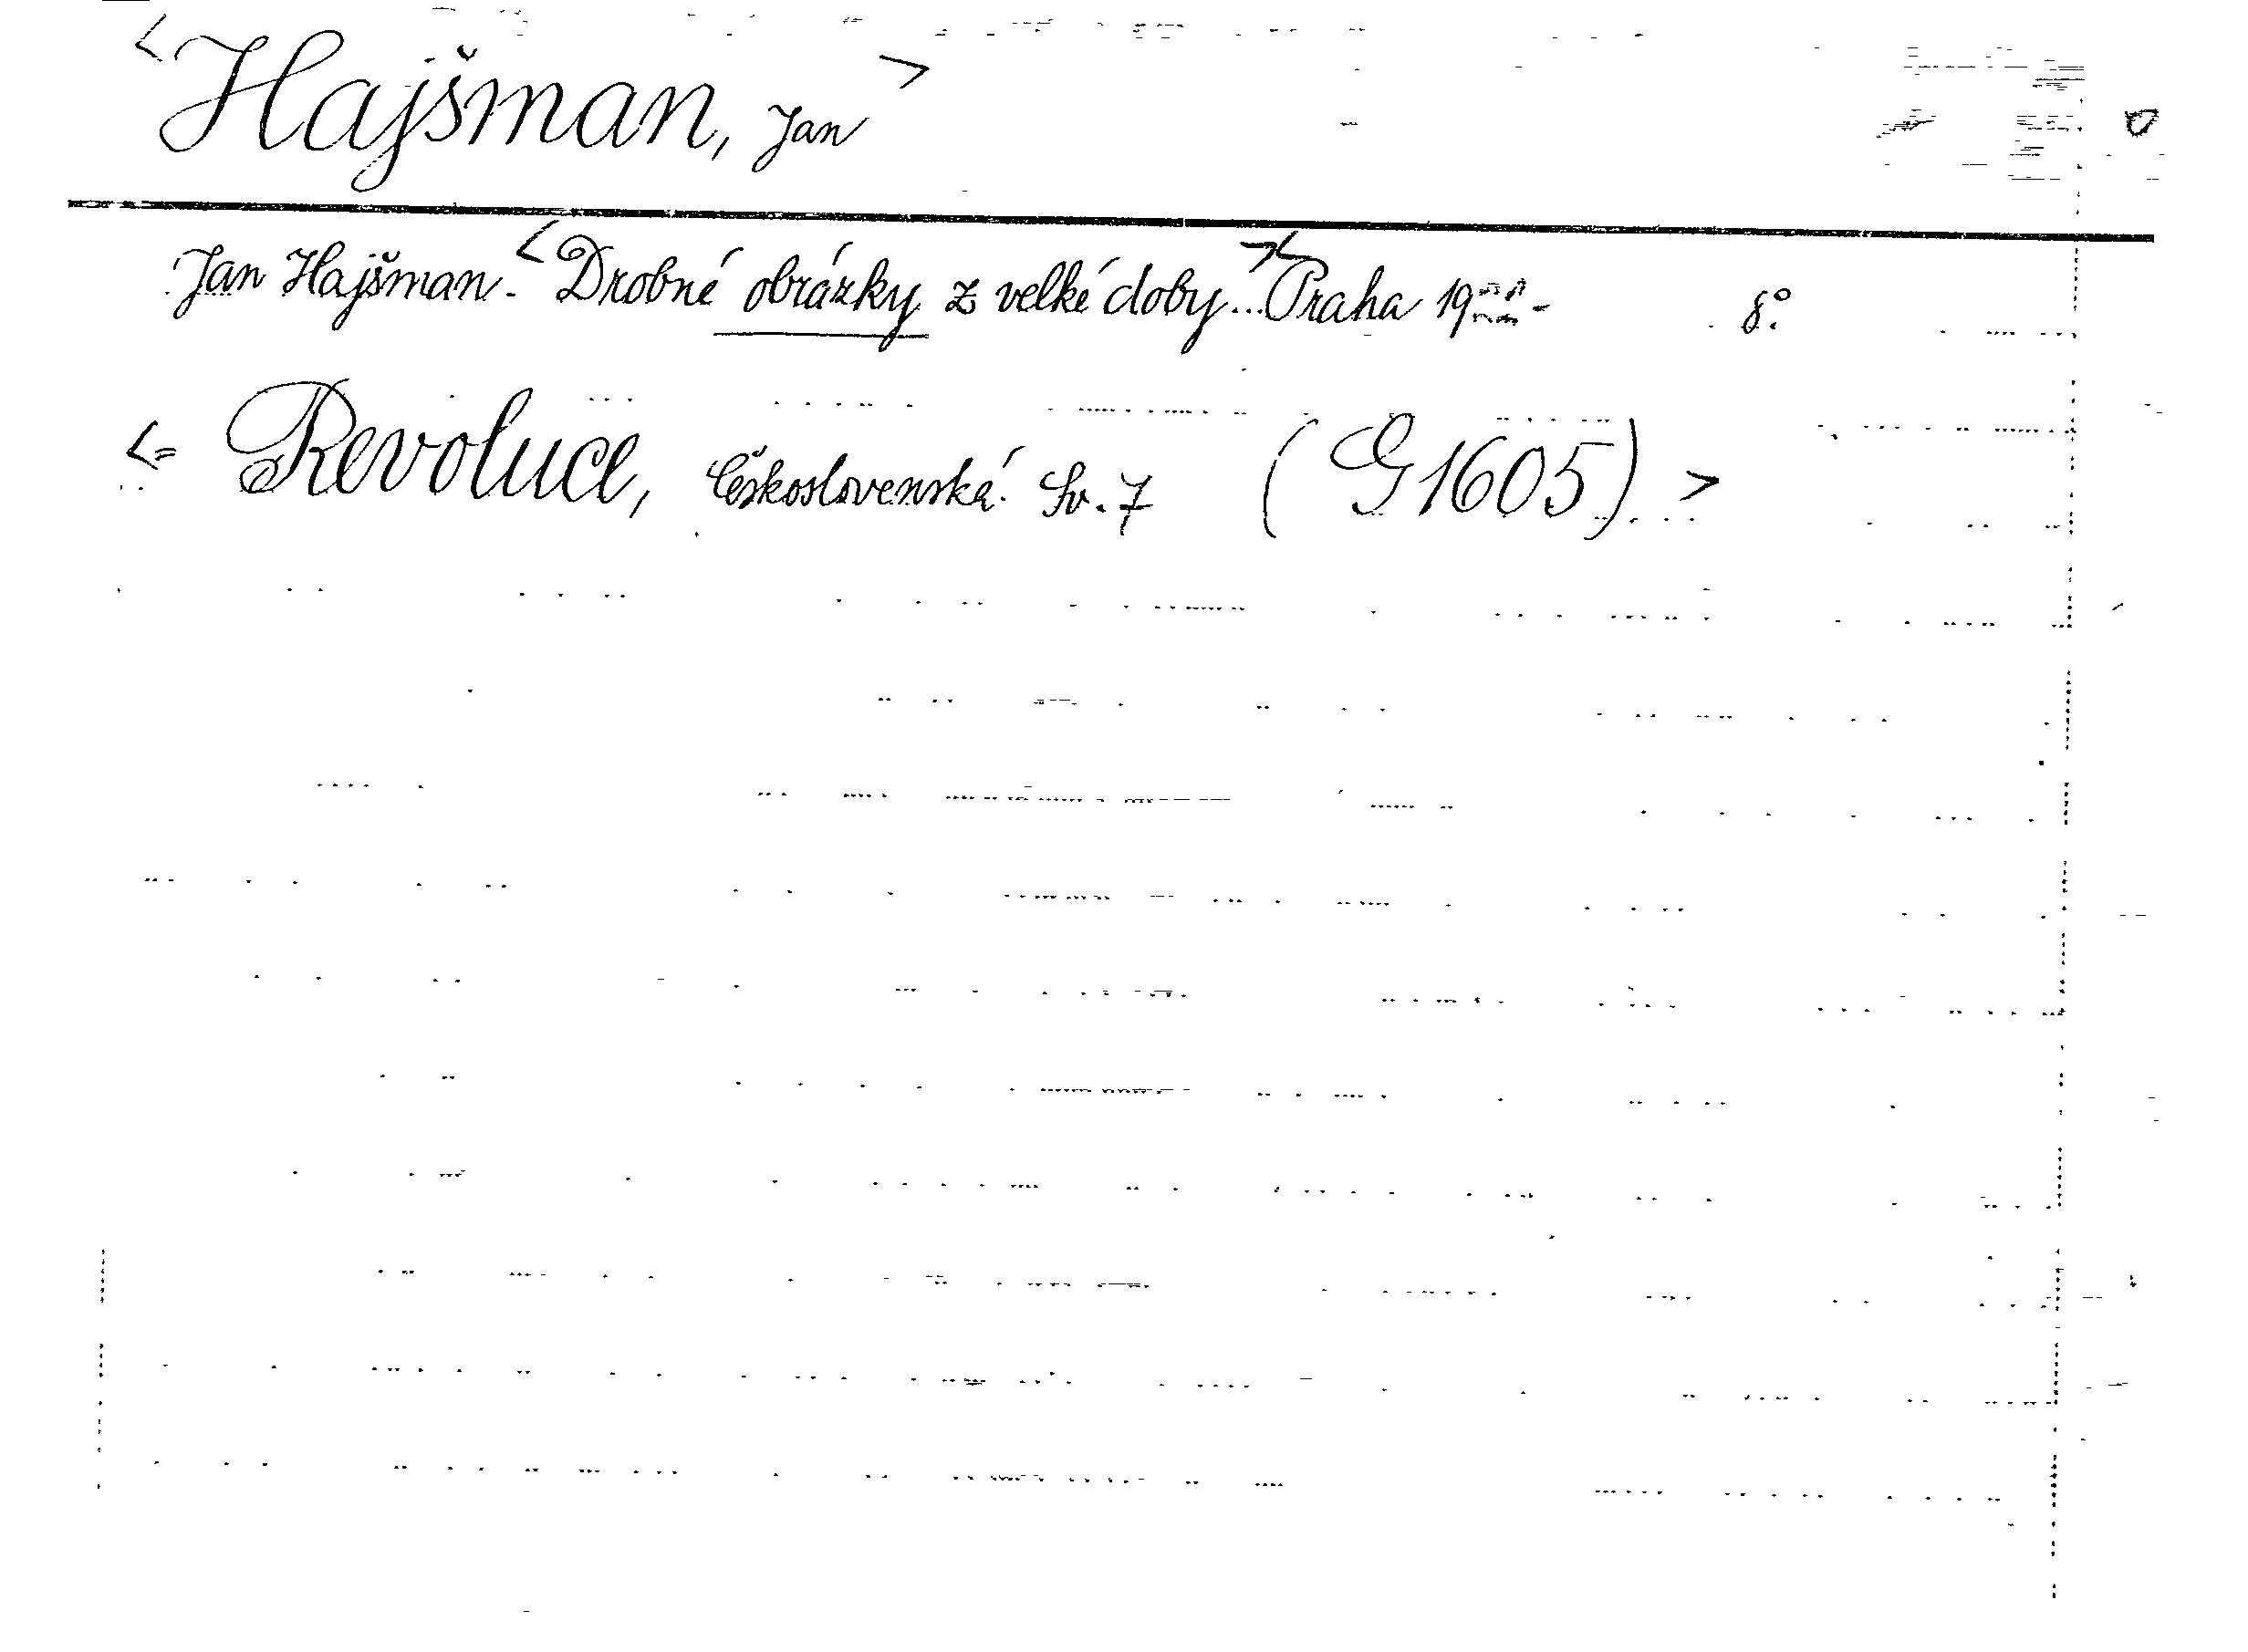 <Hajšman, Jan>
Jan Hajšman. <Drobné obrázky z velké doby...><Praha 19 - 8°.
<= Revoluce, Československá. Sv. 7 (G1605)>